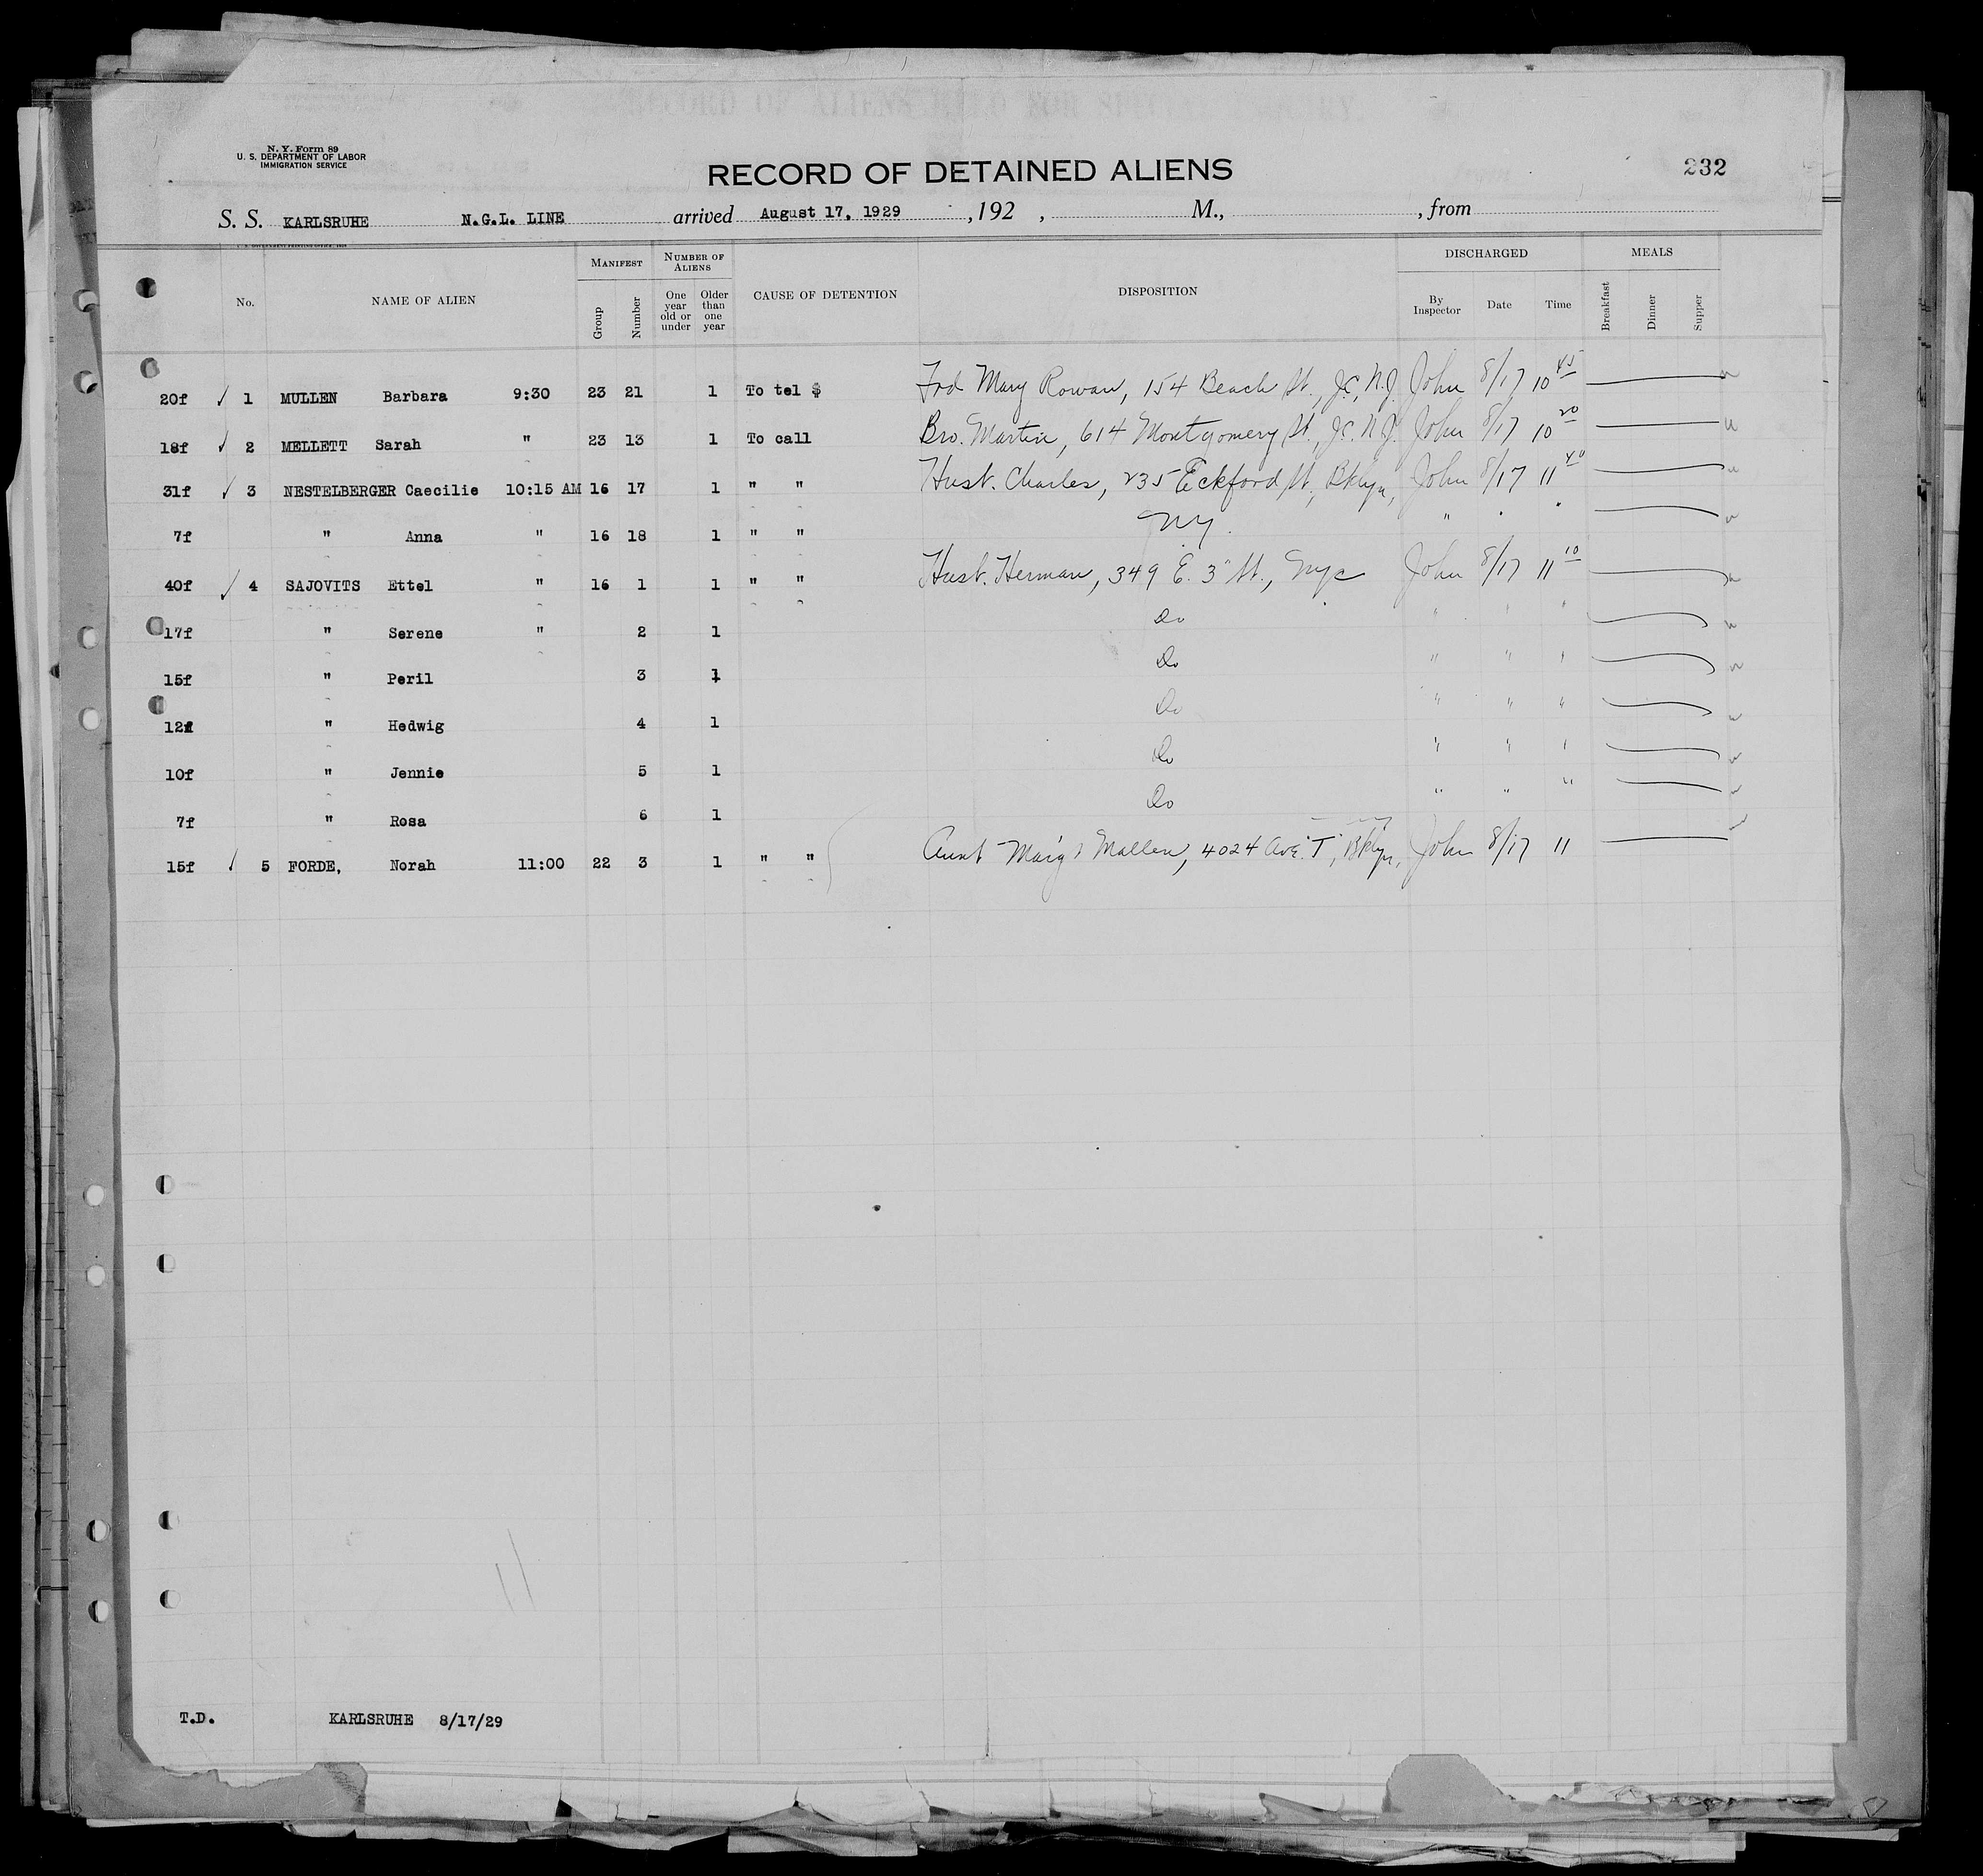 N. Y. Form 89
U. S. DEPARTMENT OF LABOR
IMMIGRATION SERVICE
RECORD OF DETAINED ALIENS
232
S. S. KARLSRUHE N.G.L. LINE arrived August 17, 1929 , 192 , M., , from
No. NAME OF ALIEN MANIFEST Group Number NUMBER OF ALIENS One year old or under Older than one year CAUSE OF DETENTION DISPOSITION DISCHARGED By Inspector Date Time MEALS Breakfast Dinner Supper
20f ✓ 1 MULLEN Barbara 9:30 23 21 1 To tel $ Frd Mary Rowan, 154 Beach St., J.C., N.J. John 8/17 10 45
18f ✓ 2 MELLETT Sarah " 23 13 1 To call Bro. Martin, 614 Montgomery St., J.C. N.J. John 8/17 10 20
31f ✓ 3 NESTELBERGER Caecilie 10:15 AM 16 17 1 " " Husb. Charles, 235 Eckford St., Bklyn, John 8/17 11 40
7f " Anna " 16 18 1 " " N.Y. " " "
40f ✓ 4 SAJOVITS Ettel " 16 1 1 " " Husb. Herman, 349 E. 3" St., Nyc John 8/17 11 10
17f " Serene " 2 1 Do " " "
15f " Peril 3 1 Do " " "
12f " Hedwig 4 1 Do " " "
10f " Jennie 5 1 Do " " "
7f " Rosa 6 1 Do " " "
15f ✓ 5 FORDE, Norah 11:00 22 3 1 " " Aunt Marg't Mallen, 4024 Ave. "T", Bklyn, John 8/17 11
T.D. KARLSRUHE 8/17/29